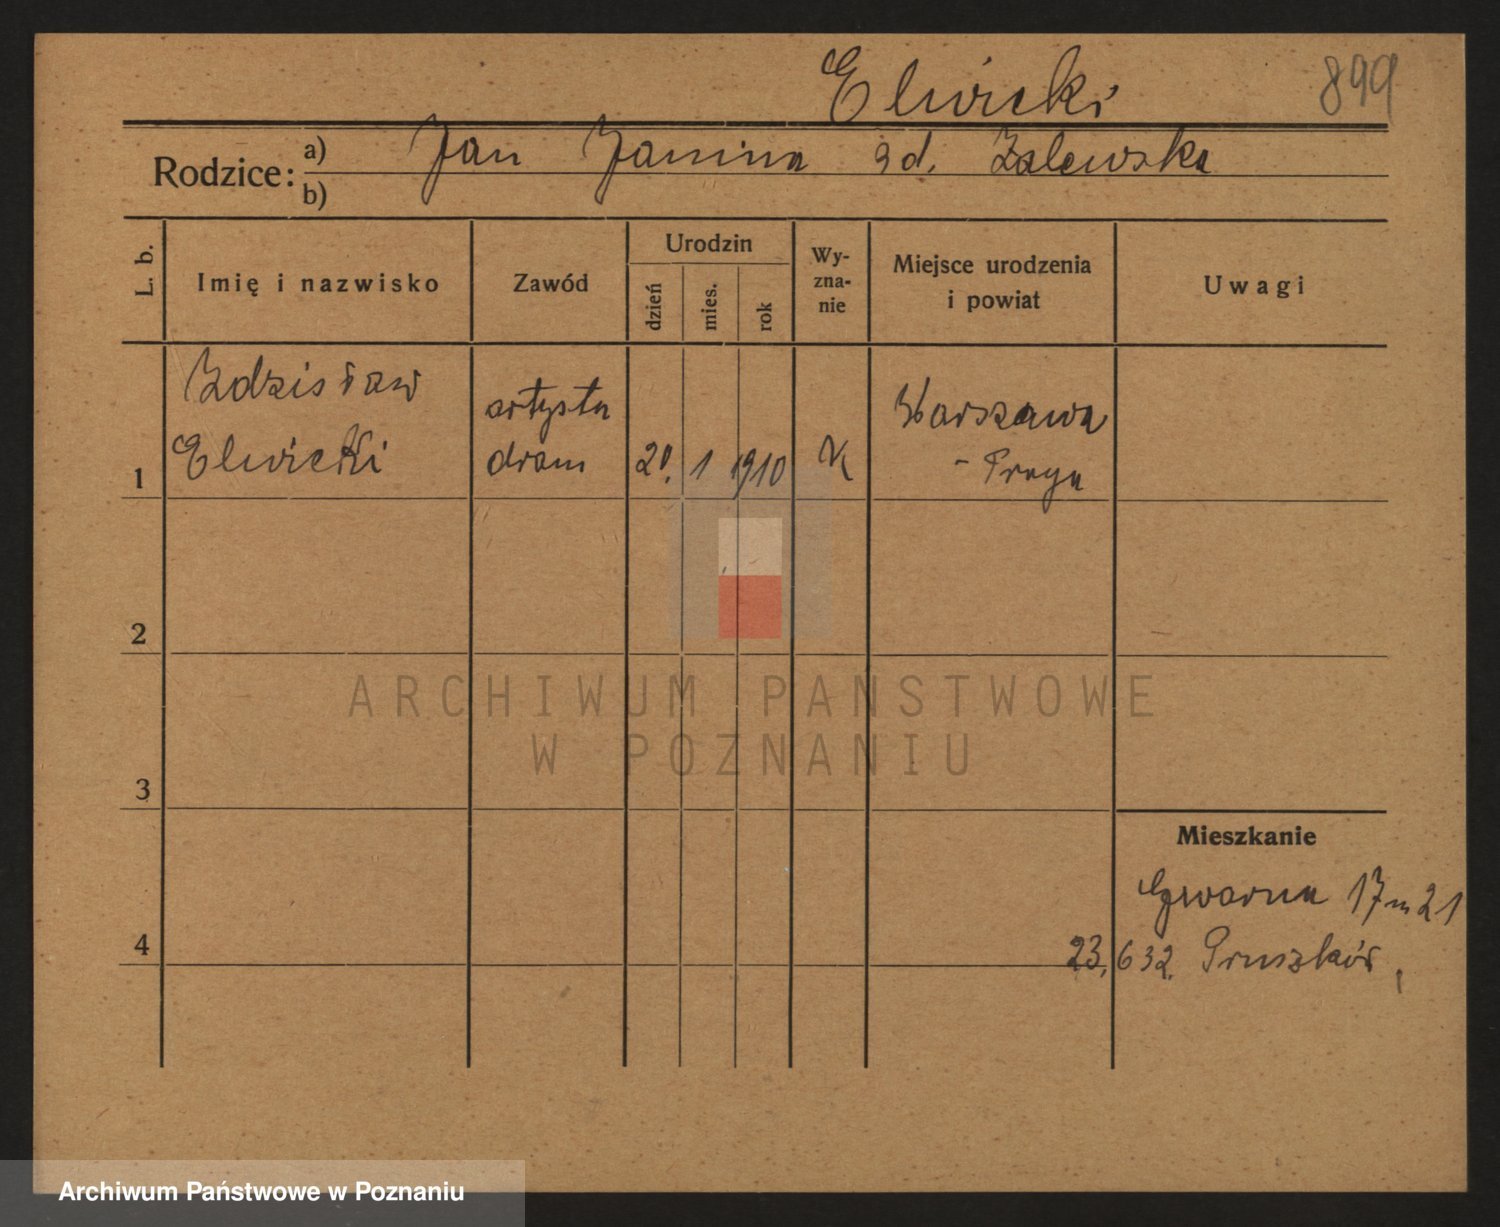 Elwicki 899
Rodzice: a) Jan Janina zd. Zalewska
b)
L. b.
Imię i nazwisko
Zawód
Urodzin
dzień
mies.
rok
Wy-
zna-
nie
Miejsce urodzenia
i powiat
Uwagi
Zdzisław
Elwicki
artysta
dram
20. 1 1910
K
Warszawa
- Praga
1
2
3
4
Mieszkanie
Gwarna 17 m 21
23.632. Pruszków
ARCHIWUM PAŃSTWOWE
W POZNANIU
Archiwum Państwowe w Poznaniu